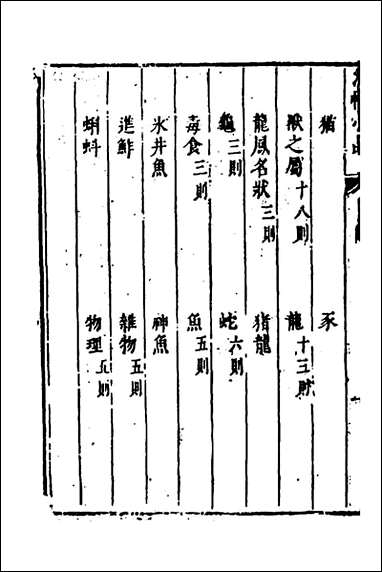 猫　豕
獸之屬十八則　龍十三則
龍風名狀三則　猪龍
龜三則　蛇六則
毒食三則　魚五則
氷井魚　神魚
造鮓　雜物五則
蝌蚪　物理五則